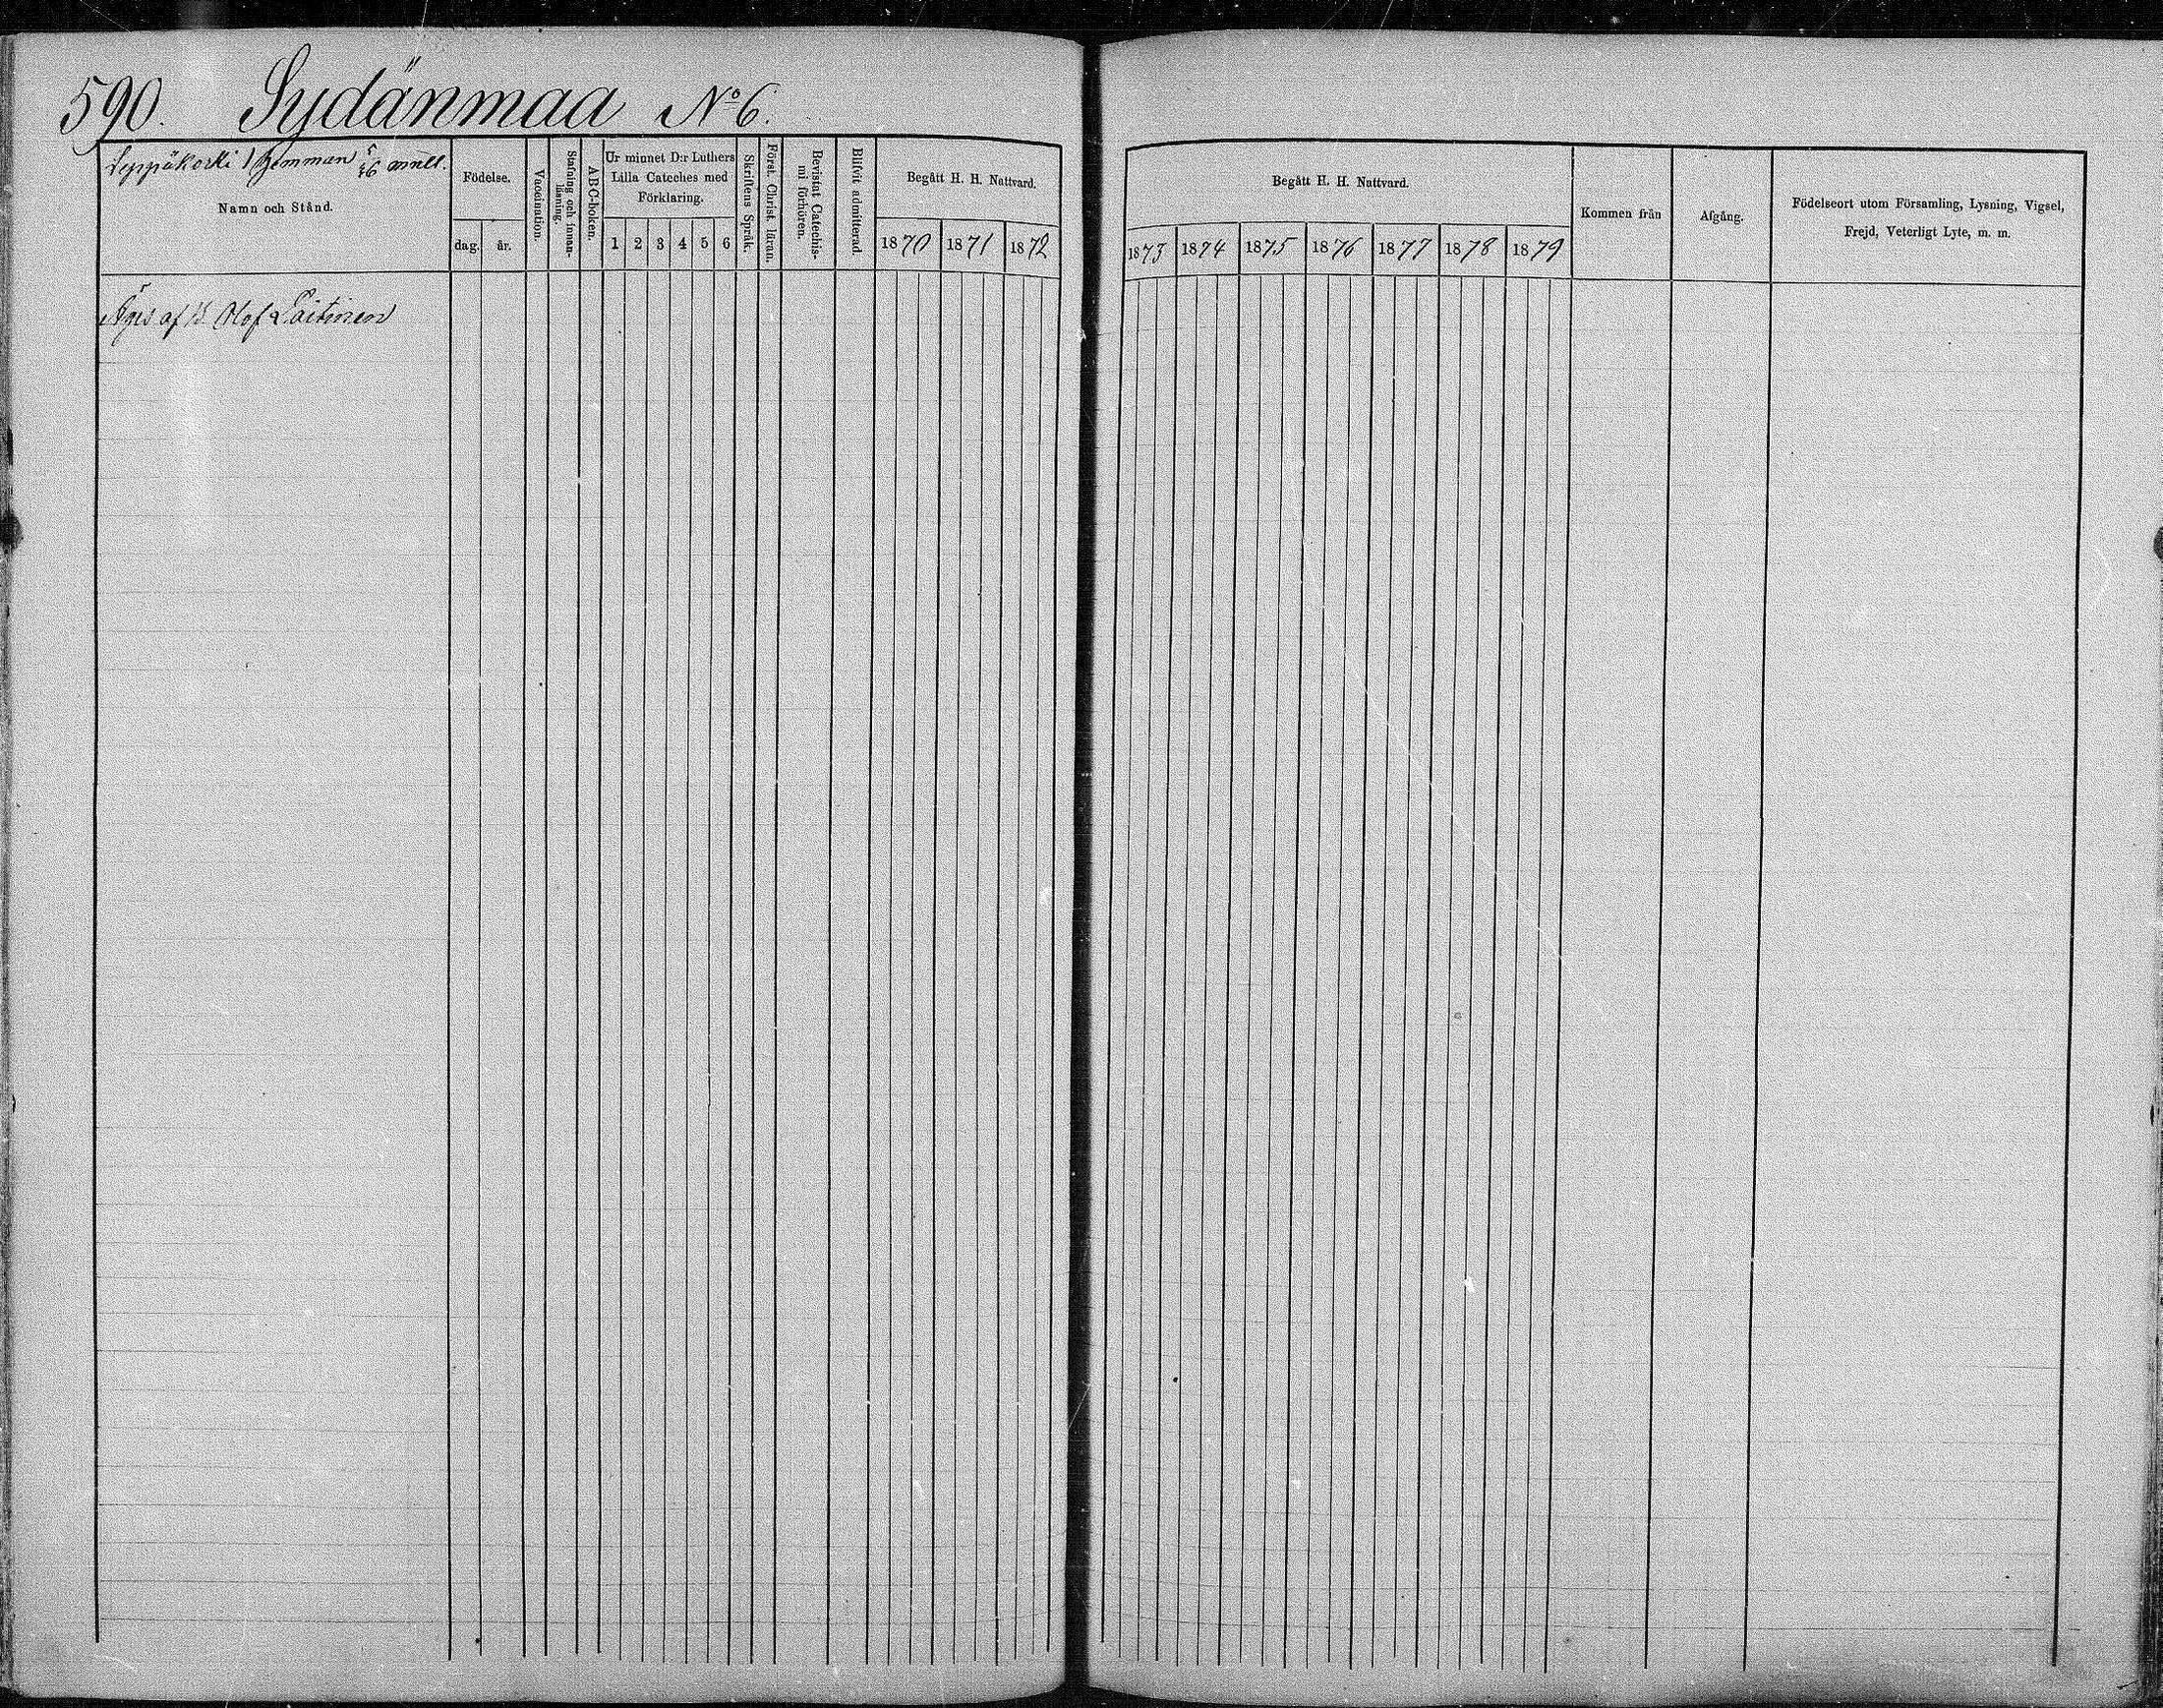 590. Sydänmaa No 6.
Leppäkoski / Hemman 5/46 mtl.
Namn och Stånd.
Födelse.
dag.
år.
Vaccination.
Stafning och innan-
läsning.
ABC-boken.
Ur minnet D:r Luthers
Lilla Cateches med
Förklaring.
1 2 3 4 5 6
Skriftens Språk.
Först. Christ. läran.
Bevistat Catechis-
mi förhören.
Blifvit admitterad.
Begått H. H. Nattvard.
1870 1871 1872
Begått H. H. Nattvard.
1873 1874 1875 1876 1877 1878 1879
Kommen från
Afgång.
Födelseort utom Församling, Lysning, Vigsel,
Frejd, Veterligt Lyte, m. m.
Äges af B. Olof Laitinen